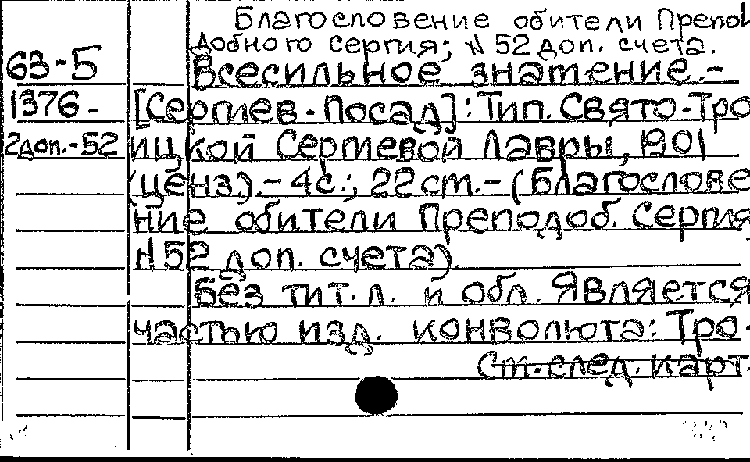 Благословение обители Препо
добного Сергия; N 52 доп. счета.
63-5
Всесильное знамение.-
1376-
[Сергиев-Посад]: Тип. Свято-Тро
2доп.-52
ицкой Сергиевой Лавры, 1901
(ценз).- 4с.; 22см.- (Благослове
ние обители Преподоб. Сергия
N 52 доп. счета).
Без тит. л. и обл. Является
частью изд. конволюта: Тро-
См. след. карт.